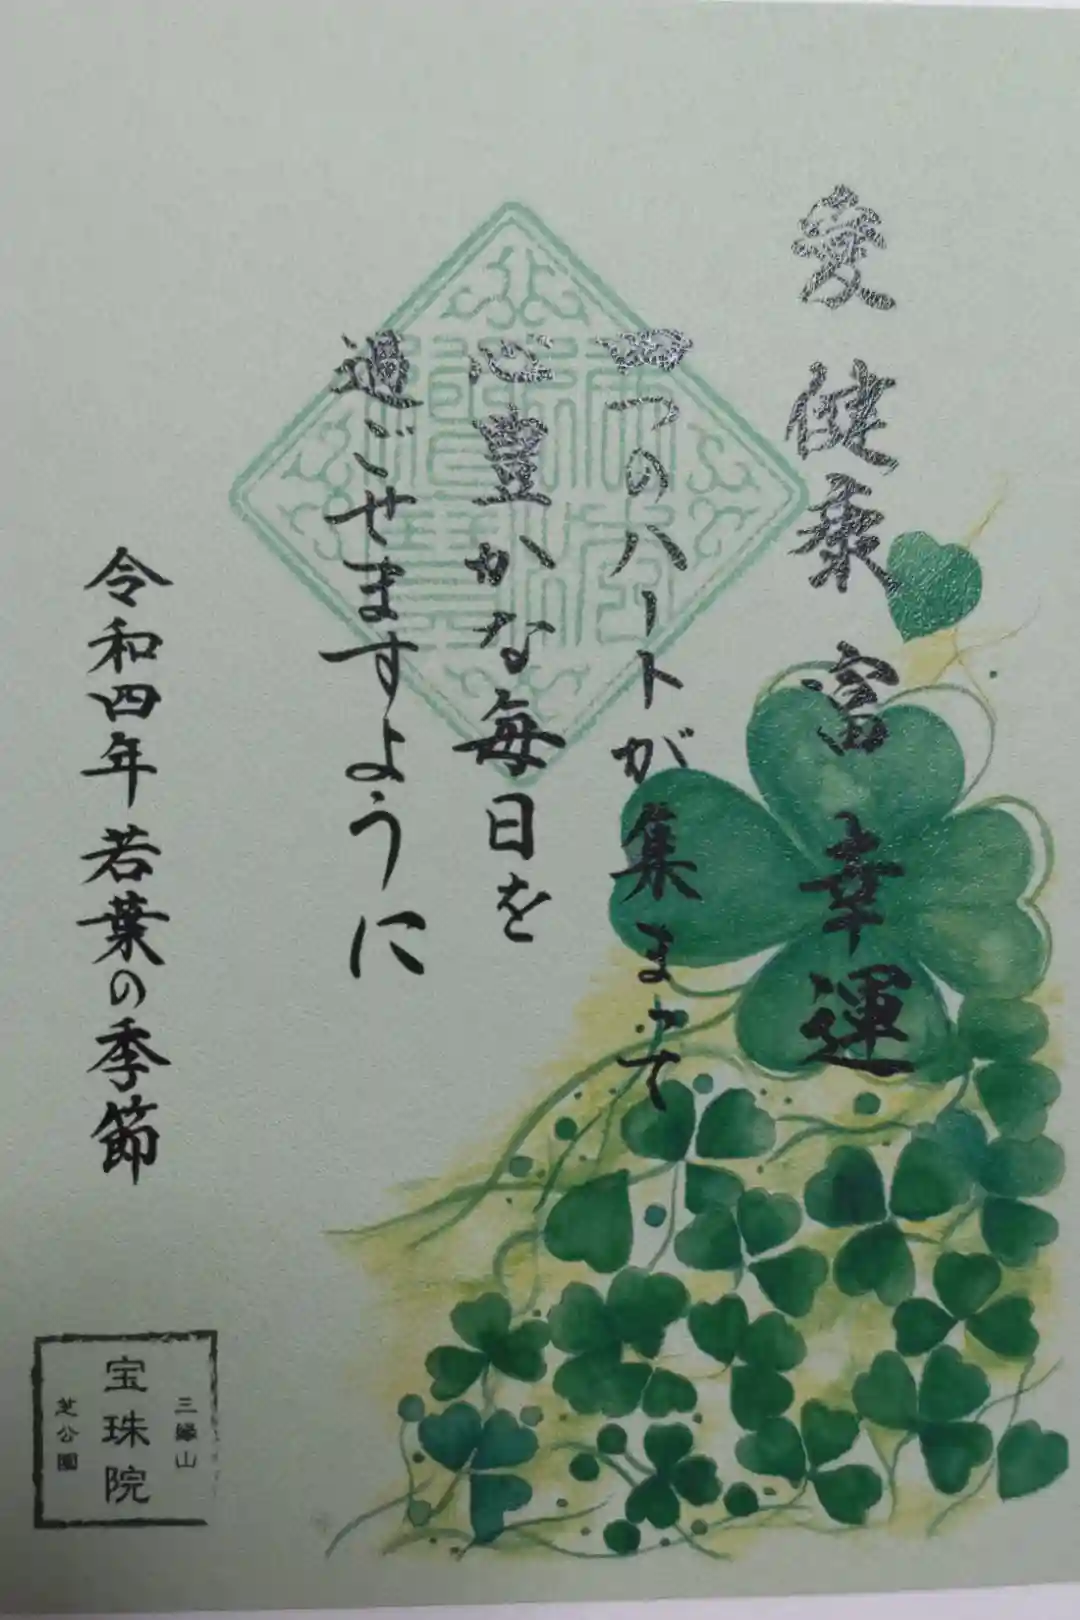 愛 健康 富 幸運
四つのハートが集まって
心豊かな毎日を
過ごせますように
令和四年 若葉の季節
三縁山
宝珠院
芝公園